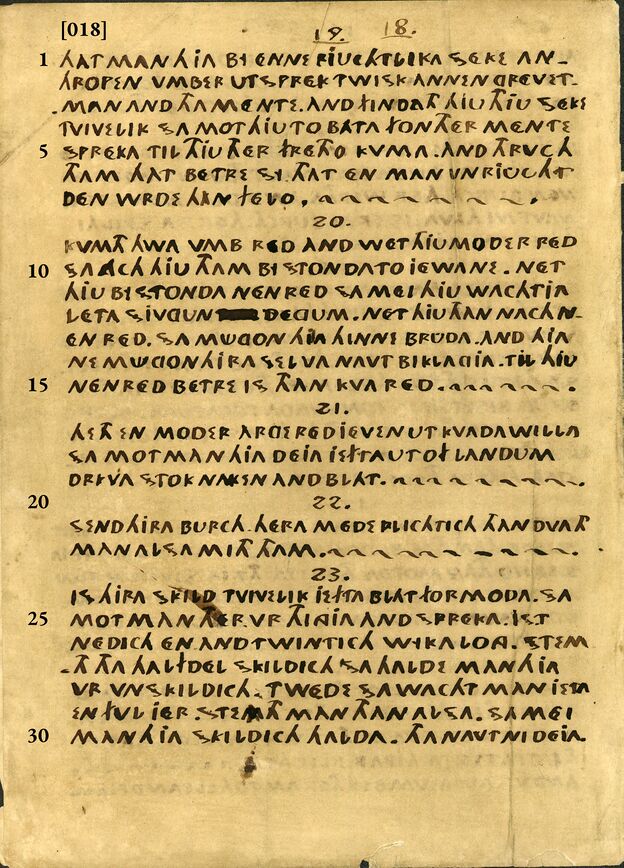 [018] 19. 18.
1 HAT MAN HIA BI ENNE RIUCHTLIKA SEKE AN-
HROPEN VMBER UTSPREK TWISK ANNEN GREVET-
MAN AND THA MENTE. AND FINDATH HIU THIU SEKE
TVIVELIK SA MOT HIU TO BATA FON THER MENTE
5 SPREKA TIL THIU THER FRETHO KVMA. AND THRUCH
THAM HAT BETRE SI. THAT EN MAN UNRIUCHT
DEN WRDE HAN FELO.
20.
KVMTH HWA VMB RED AND WET HIU MODER RED
10 SA ACH HIU THAM BI STONDA TO IEWANE. NET
HIU BISTONDA NEN RED SA MEI HIU WACHTIA
LETA SIVGUN DEGUM. NET HIU THAN NACH N-
EN RED. SA MUGON HIA HINNE BRUDA. AND HIA
NE MUGON HIRA SELVA NAVT BIKLAGIA. TIL HIU
15 NEN RED BETRE IS THAN KVA RED.
21.
HETH EN MODER ARGE RED IEVEN UT KVADA WILLA
SA MOT MAN HIA DEIA IEFTHA UT OF LANDUM
DRIVA STOKNAKEN AND BLAT.
20 22.
SEND HIRA BURCH HERA MEDEPLICHTICH THAN DVATH
MAN ALSA MITH THAM.
23.
IS HIRA SKILD TVIVELIK IEFTHA BLAT FORMODA. SA
25 MOT MAN THER.VR THIGIA AND SPREKA. IST
NEDICH EN AND TWINTICH WIKA LOA. STEM
TH THA HALFDEL SKILDICH SA HALDE MAN HIA
VR VNSKILDICH. TWEDE SA WACHT MAN IETA
EN FUL IER. STEMTH MAN THAN ALSA. SA MEI
30 MAN HIA SKILDICH HALDA. THA NAVT NI DEIA.